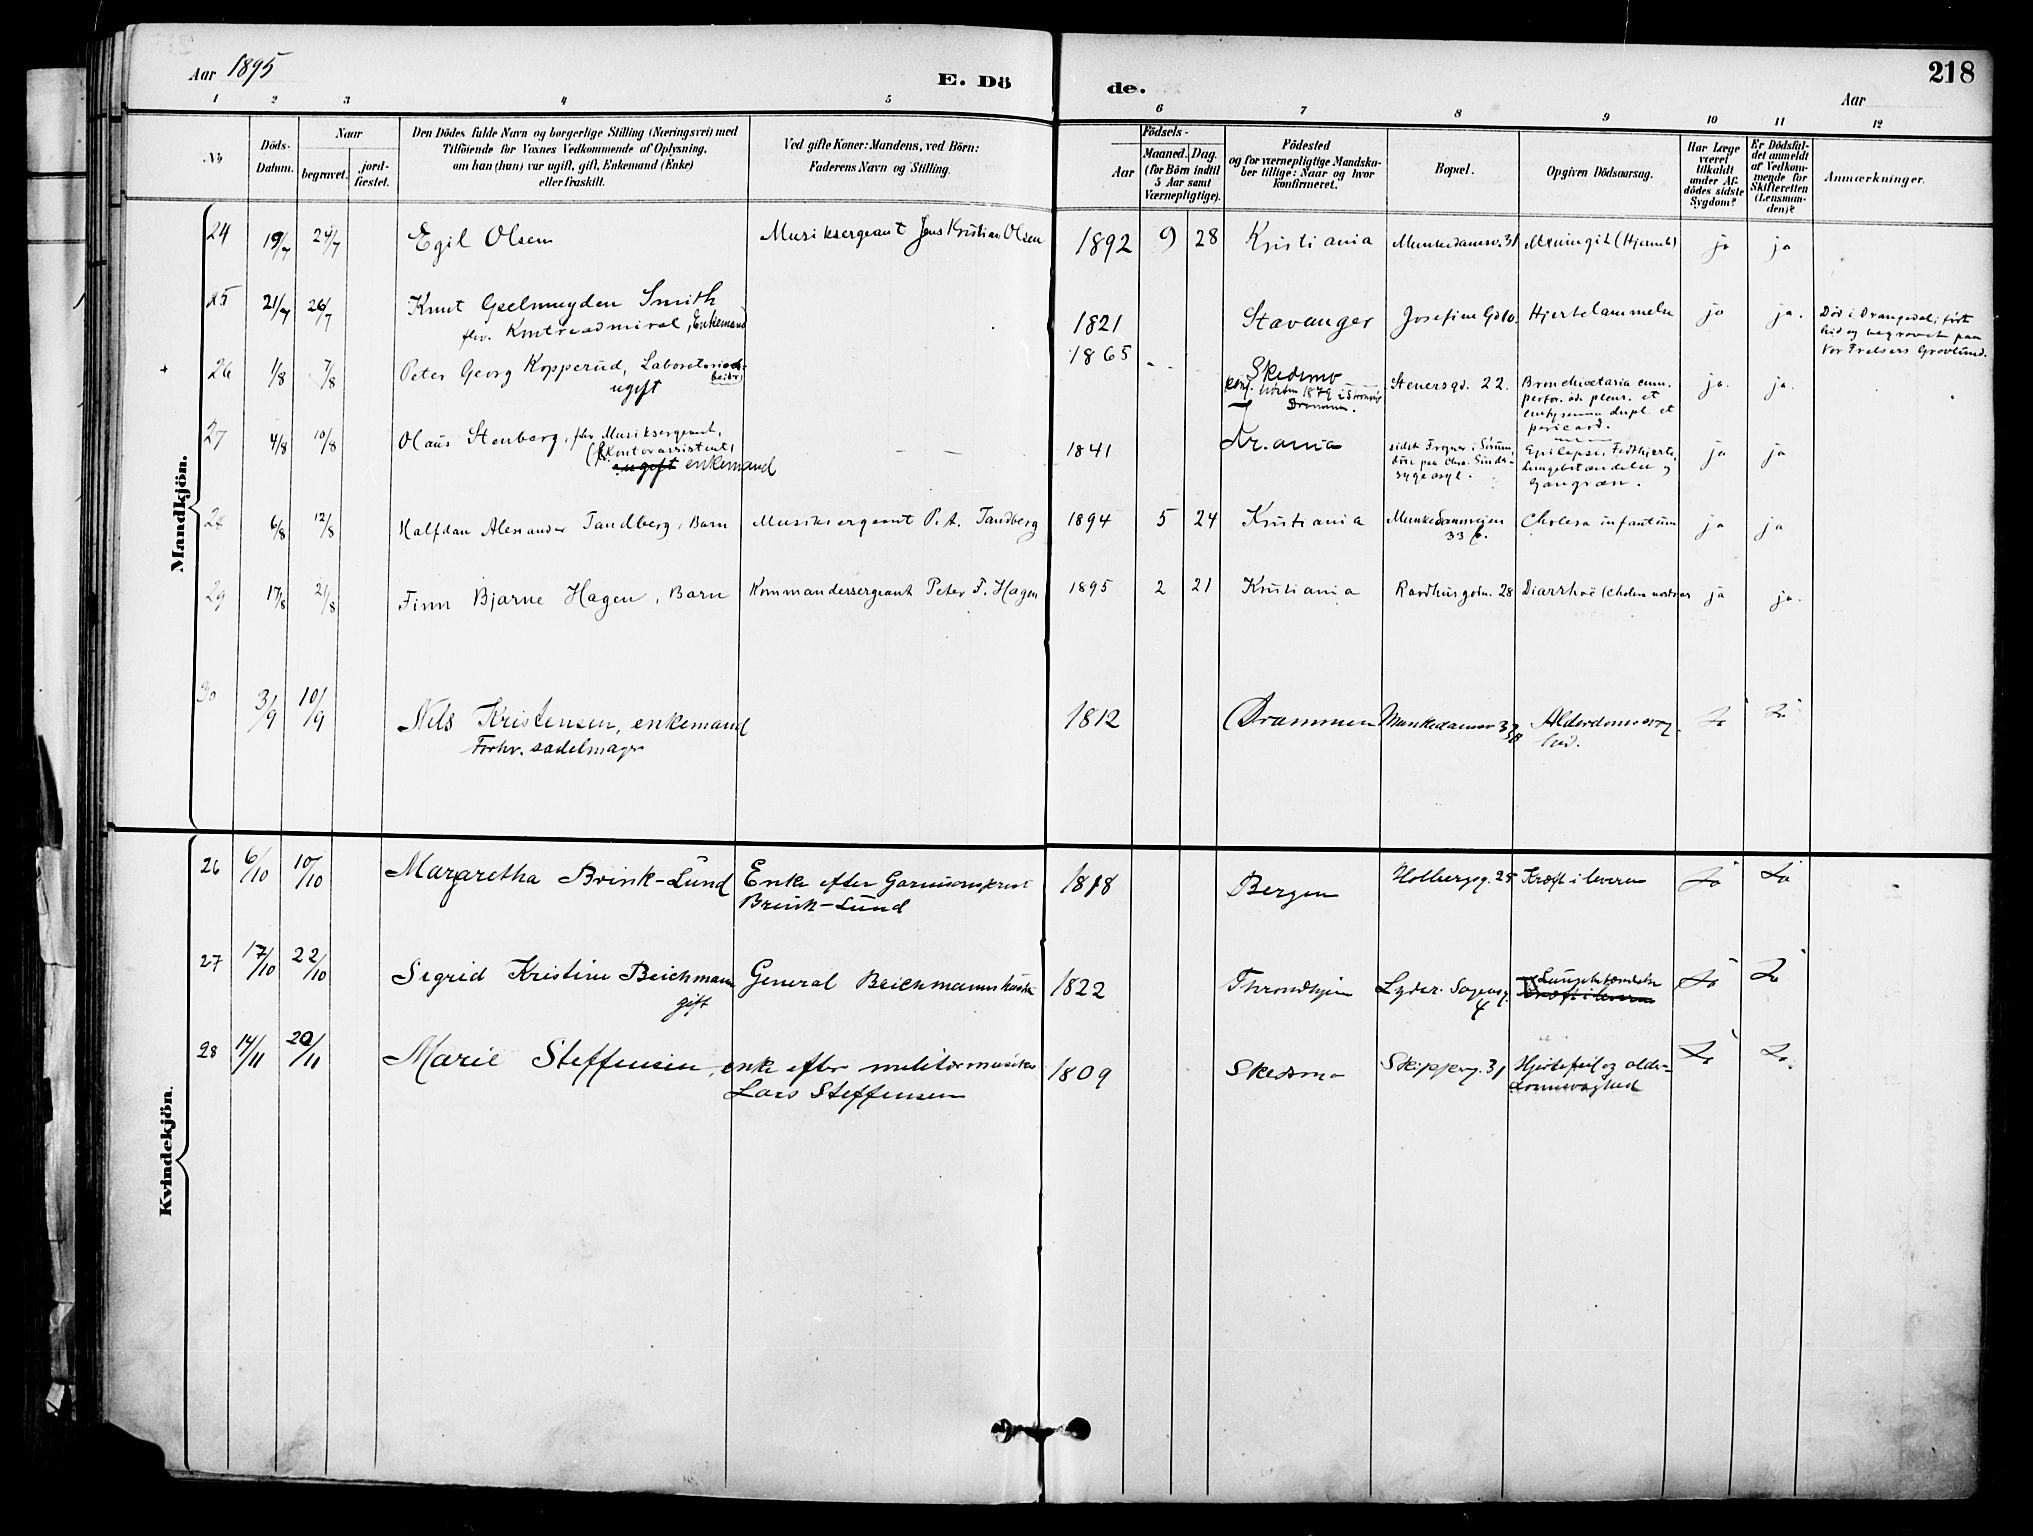 Aar 1895
E. Dö
de.
218
Aar
1 2 3 4 5 6 7 8 9 10 11 12
No
Döds-
Datum.
Naar
begravet.
jord-
fæstet.
Den Dödes fulde Navn og borgerlige Stilling (Næringsvei) med
Tilföiende for Voxnes Vedkommende af Oplysning,
om han (hun) var ugift, gift, Enkemand (Enke)
eller fraskilt.
Ved gifte Koner: Mandens, ved Börn:
Faderens Navn og Stilling.
Födsels-
Aar
Maaned. Dag.
(for Börn indtil
5 Aar samt
Værnepligtige).
Födested
og for værnepligtige Mandska-
ber tillige: Naar og hvor
konfirmeret.
Bopæl.
Opgiven Dödsaarsag.
Har Læge
været
tilkaldt
under Af-
dödes sidste
Sygdom?
Er Dödsfal-
det anmeldt
af Vedkom-
mende for
Skifteretten
(Lensman-
den)?
Anmærkninger.
Mandkjön.
24 19/7 24/7 Egil Olsen Musiksergeant Jens Kristian Olsen 1892 9 28 Kristiania Munkedamsv. 31 Meningit (Hjerneb) ja ja
25 21/7 26/7 Knut Geelmuyden Smith
fhv. Kontreadmiral, Enkemand
1821 Stavanger Josefine Gd 10. Hjertelammelse ja ja.
Död i Drangedal; fört
hid og begravet paa
Vor Frelsers Gravlund.
26 1/8 7/8 Peter Georg Kopperud, Laboratoriear-
beider
ugift
1865 - - Skedsmo
konf. 1879 i
Drammen.
Stenersgd. 22. Bronchiectasia cum.
perfor. ad pleur. et
emfysema dupl. et
pericard.
ja. ja.
27 4/8 10/8 Olaus Stenberg, fhv Musiksergeant,
(fhv. Kontorassistent)
ugift enkemand
- - 1841 Kr.ania sidst Frogner i Sörum,
döde paa Chra. Sinds-
sygeasyl.
Epilepsi, Fedthjerte,
Lungebetændelse og
Gangræn.
ja ja
28 6/8 12/8 Halfdan Alexander Tandberg, Barn Musiksergeant P. A. Tandberg 1894 5 24 Kristiania Munkedamsveien
33 b.
Cholera infantum ja ja
29 17/8 21/8 Finn Bjarne Hagen, Barn Kommandersergeant Peter F. Hagen 1895 2 21 Kristiania Raadhusgdn. 28 Diarrhoë (cholera nostras ja ja.
30 3/9 10/9 Nils Kristensen, enkemand
Forhv. sadelmager
1812 Drammen Munkedamsv 33
B
Alderdomssvag-
hed.
Ja Ja
Kvindekjön.
26 6/10 10/10 Margaretha Brink-Lund Enke efter Garnisonsprest
Brink-Lund
1818 Bergen Holbergsg. 25 Kræft i leveren Ja Ja
27 17/10 22/10 Sigrid Kristine Beichmann
gift
General Beichmanns hustru 1822 Throndhjem Lyder Sagensg.
4
Lungebetændelse
Kræft i leveren
Ja Ja
28 14/11 20/11 Marie Steffensen, enke efter militærmusiker
Lars Steffensen
1809 Skedsmo Skipperg. 31 Hjertefeil og alder-
domssvaghed
Ja Ja